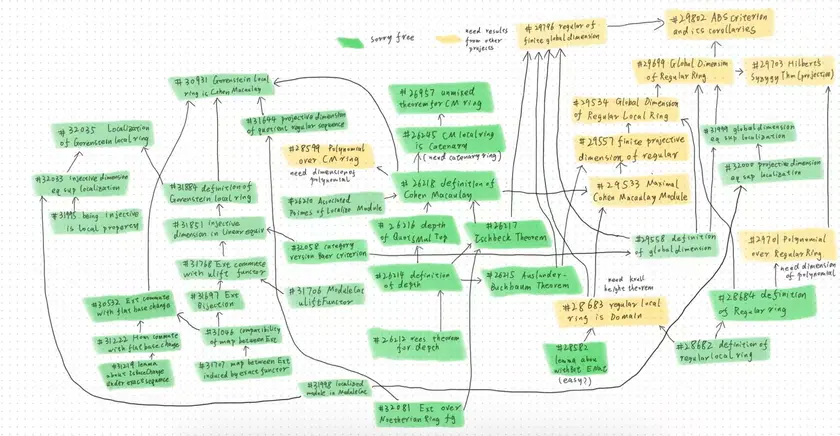 sorry free
need results
from other
projects
#29796 regular of
finite global dimension
#29802 ABS criterion
and its corollaries
#30931 Gorenstein local
ring is Cohen Macaulay
#26957 unmixed
theorem for CM ring
#29699 Global Dimension
of Regular Ring
#29703 Hilbert's
Syzygy Thm (projective)
#32035 Localization
of Gorenstein local ring
#31644 projective dimension
of quotient regular sequence
#26245 CM local ring
is Catenary
(need catenary ring)
#29534 Global Dimension
of Regular Local Ring
#28599 Polynomial
over CM ring
need dimension of
polynomial
#29557 finite projective
dimension of regular
#31999 global dimension
eq sup localization
#32033 injective dimension
eq sup localization
#31884 definition of
Gorenstein local ring
#26218 definition of
Cohen Macaulay
#29533 Maximal
Cohen Macaulay Module
#32000 projective dimension
eq sup localization
#31995 being injective
is local property
Associated
Primes of Localize Module
#31851 injective
dimension in linear equiv
#26216 depth
of QuotSMulTop
#26217
Ischbeck Theorem
#32058 category
version Baer criterion
#29558 definition
of global dimension
#29701 Polynomial
over Regular Ring
need dimension
of polynomial
#31768 Ext commute
with ulift functor
#26214 definition
of depth
#26215 Auslander-
Buchbaum Theorem
need krull
height theorem
#31706 ModuleCat
uliftFunctor
#28683 regular local
ring is Domain
#28684 definition
of Regular ring
#30532 Ext commute
with flat base change
#31697 Ext
Bijection
#31222 Hom commute
with flat base change
#31046 compatibility
of map between Ext
#26212 rees theorem
for depth
#28582
lemma about
ENat
(easy?)
#28682 definition of
regular local ring
#31219 lemma
about IsBaseChange
under exact sequence
#31707 map between Ext
induced by exact functor
#31998 localized
module in ModuleCat
#32081 Ext over
Noetherian Ring fg